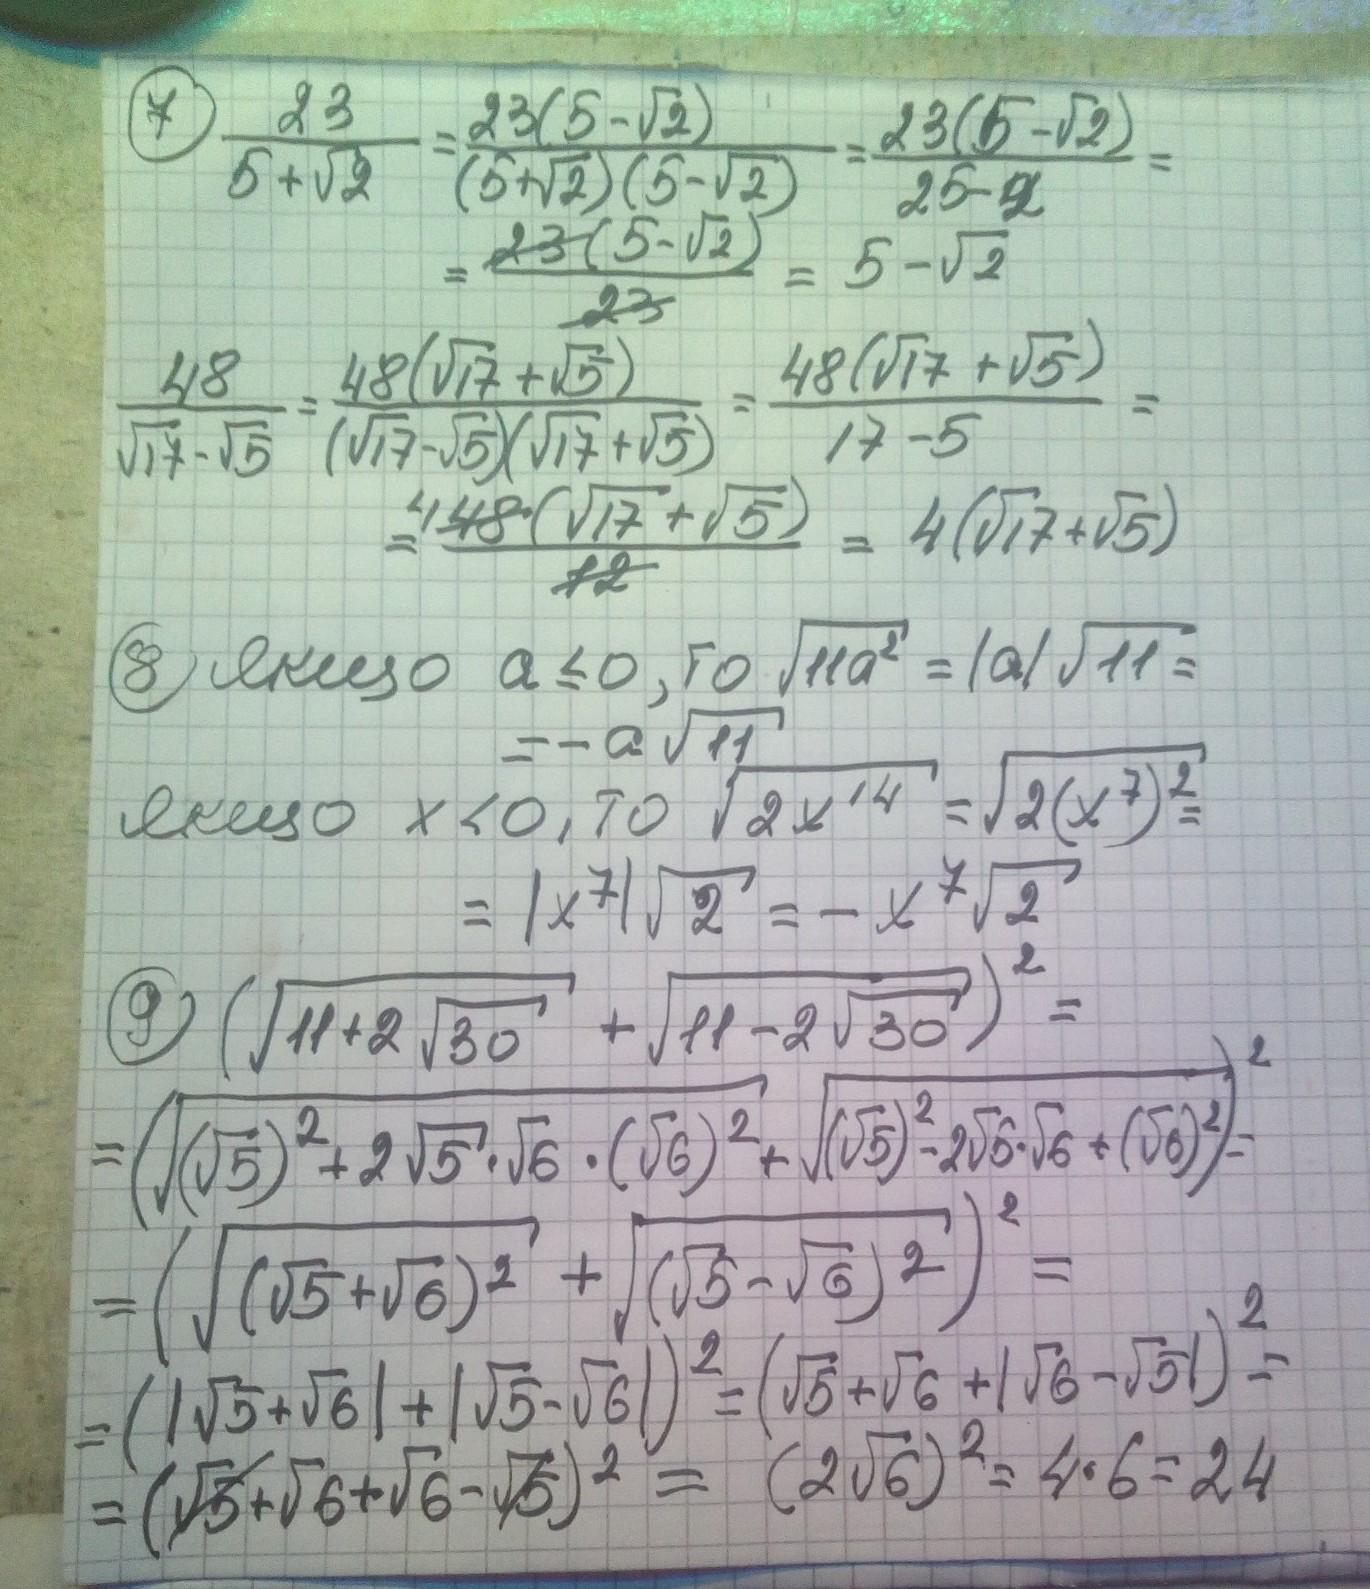 7) 23/(5+√2) = 23(5-√2)/((5+√2)(5-√2)) = 23(5-√2)/(25-2) =
= 23(5-√2)/23 = 5-√2
48/(√17-√5) = 48(√17+√5)/((√17-√5)(√17+√5)) = 48(√17+√5)/(17-5) =
= 4 48·(√17+√5)/12 = 4(√17+√5)
8) Якщо a≤0, то √(11a²) = |a|√11 =
= -a√11
Якщо x<0, то √(2x¹⁴) = √(2(x⁷)²) =
= |x⁷|√2 = -x⁷√2
9) (√(11+2√30) + √(11-2√30))² =
= (√((√5)²+2√5·√6·(√6)²) + √((√5)²-2√5·√6+(√6)²))² =
= (√((√5+√6)²) + √((√5-√6)²))² =
= (|√5+√6|+|√5-√6|)² = (√5+√6+|√6-√5|)² =
= (√5+√6+√6-√5)² = (2√6)² = 4·6 = 24